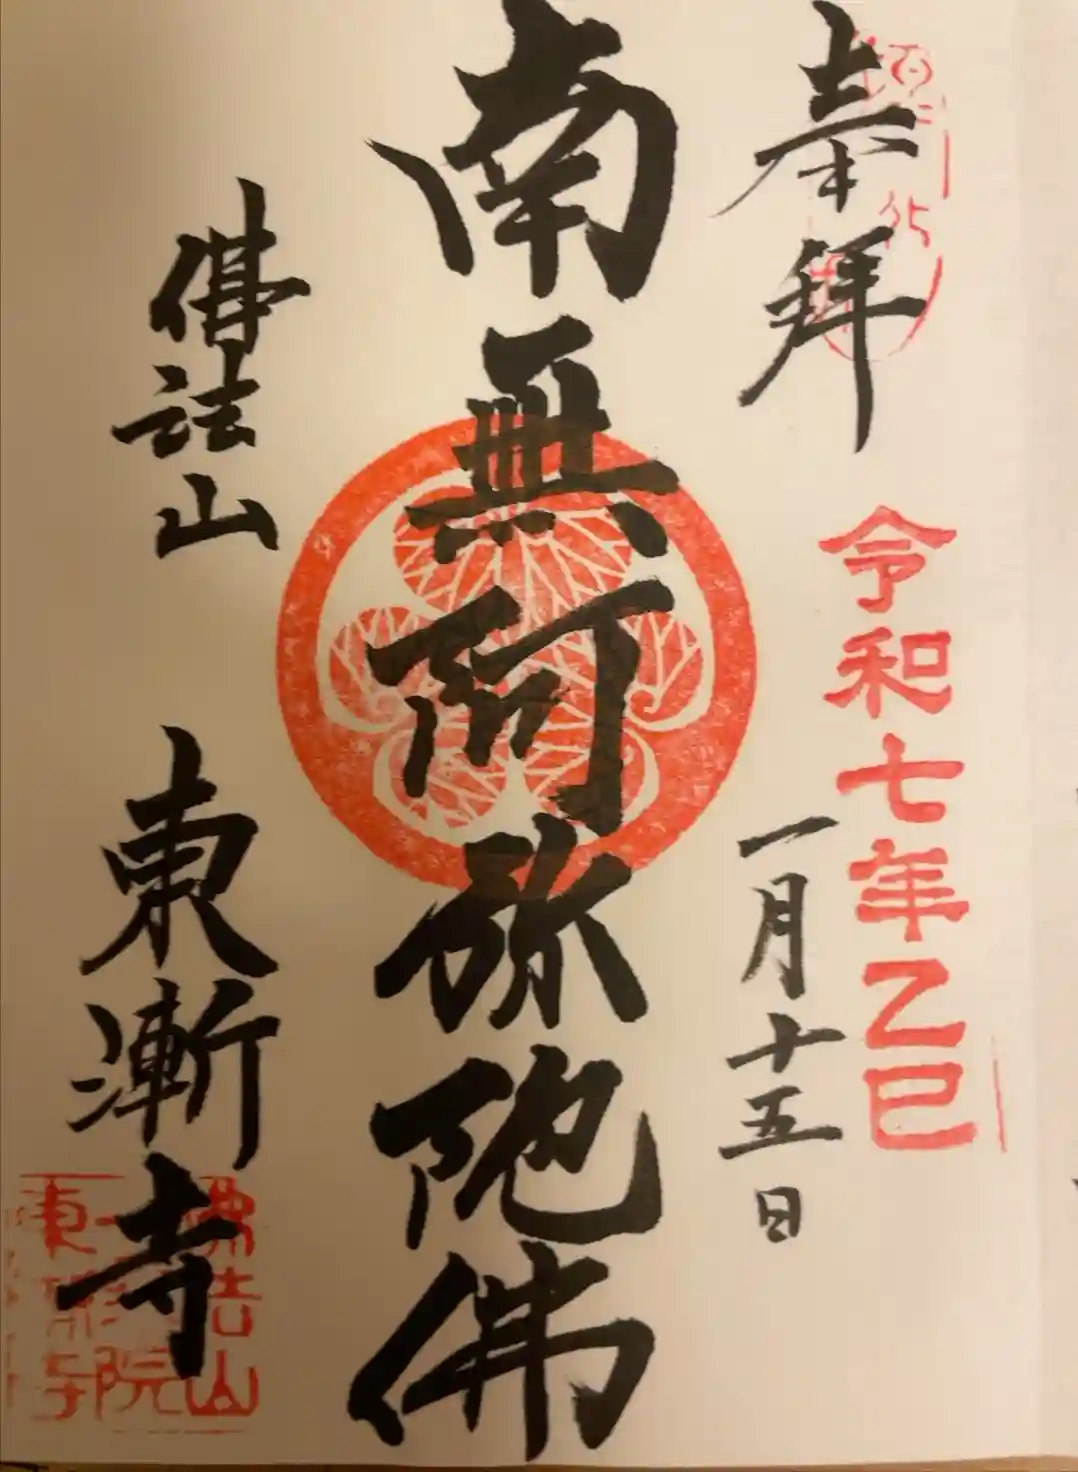 奉拜
令和七年乙巳
一月十五日
南無阿弥陀佛
佛法山 東漸寺